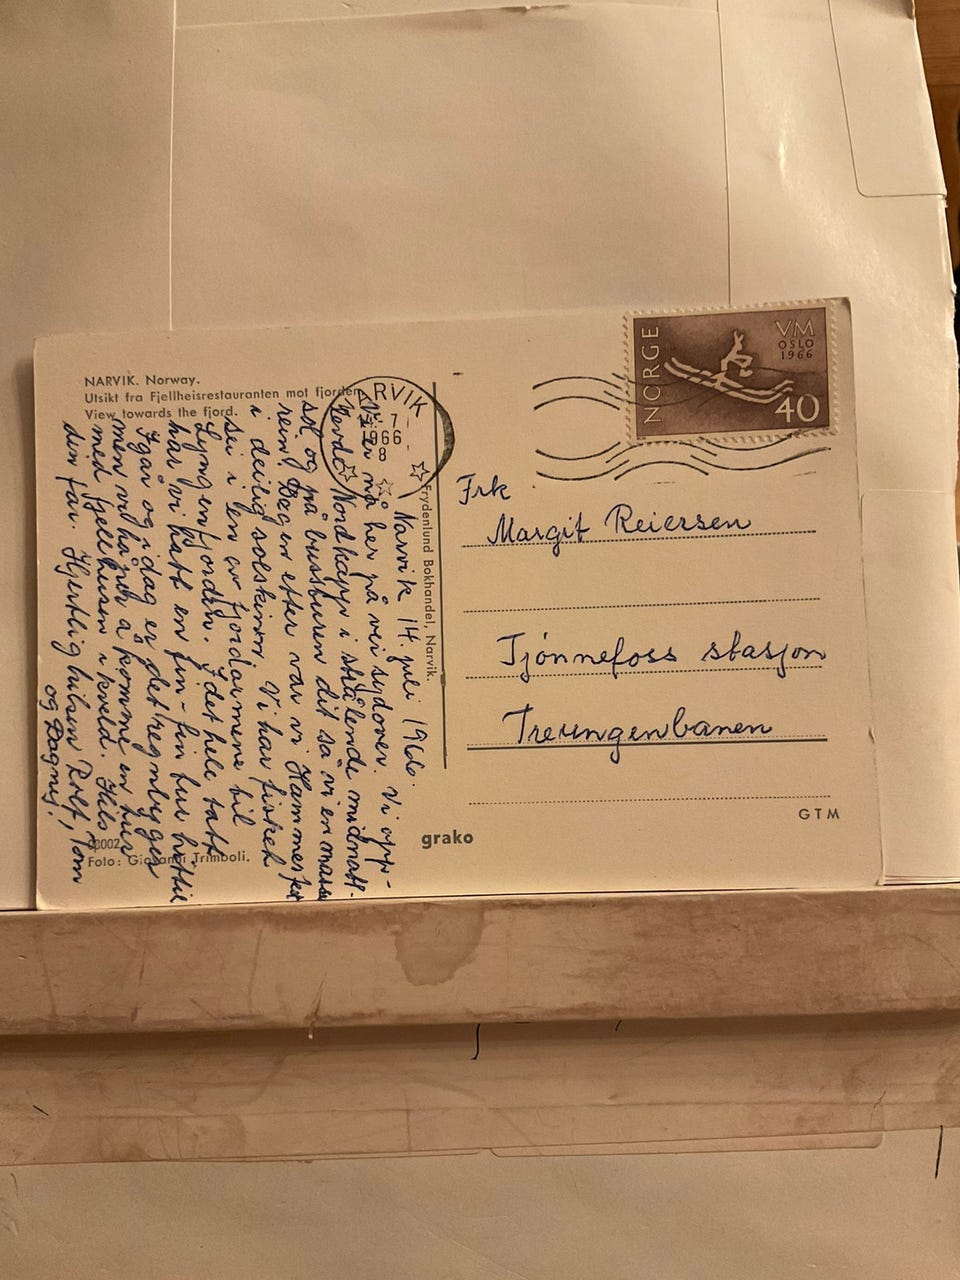 NARVIK. Norway.
Utsikt fra Fjellheisrestauranten mot fjorden
View towards the fjord.
RVIK
7
1966
8
NORGE
VM
OSLO
1966
40
Frydenlund Bokhandel, Narvik.
Narvik 14. juli 1966.
Vi er nå her på vei sydover. Vi opp-
levde Nordkapp i strålende midnatt-
sol og på bussturen dit så vi en masse
rein. Dagen efter var vi i Hammerfest
i deilig solskinn. Vi har fisket
sei i en av fjordarmene til
Lyngenfjorden. I det hele tatt
har vi hatt en fin-fin tur hittil
Igår og idag er det regnbyger
men vi håper å komme en tur
med fjellheisen i kveld. Hils
din far. Hjertlig hilsen Rolf, Tom
og Dagny!
Frk
Margit Reiersen
Tjönnefoss stasjon
Treungenbanen
GTM
grako
Foto: Giovanni Trimboli.